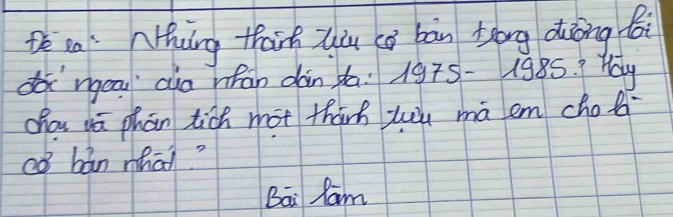 Đề ra: Những thành tựu cơ bản trong đường lối
đối ngoại của nhân dân ta: 1975 - 1985? Hãy
chọn và phân tích một thành tựu mà em cho là
cơ bản nhất?
Bài làm